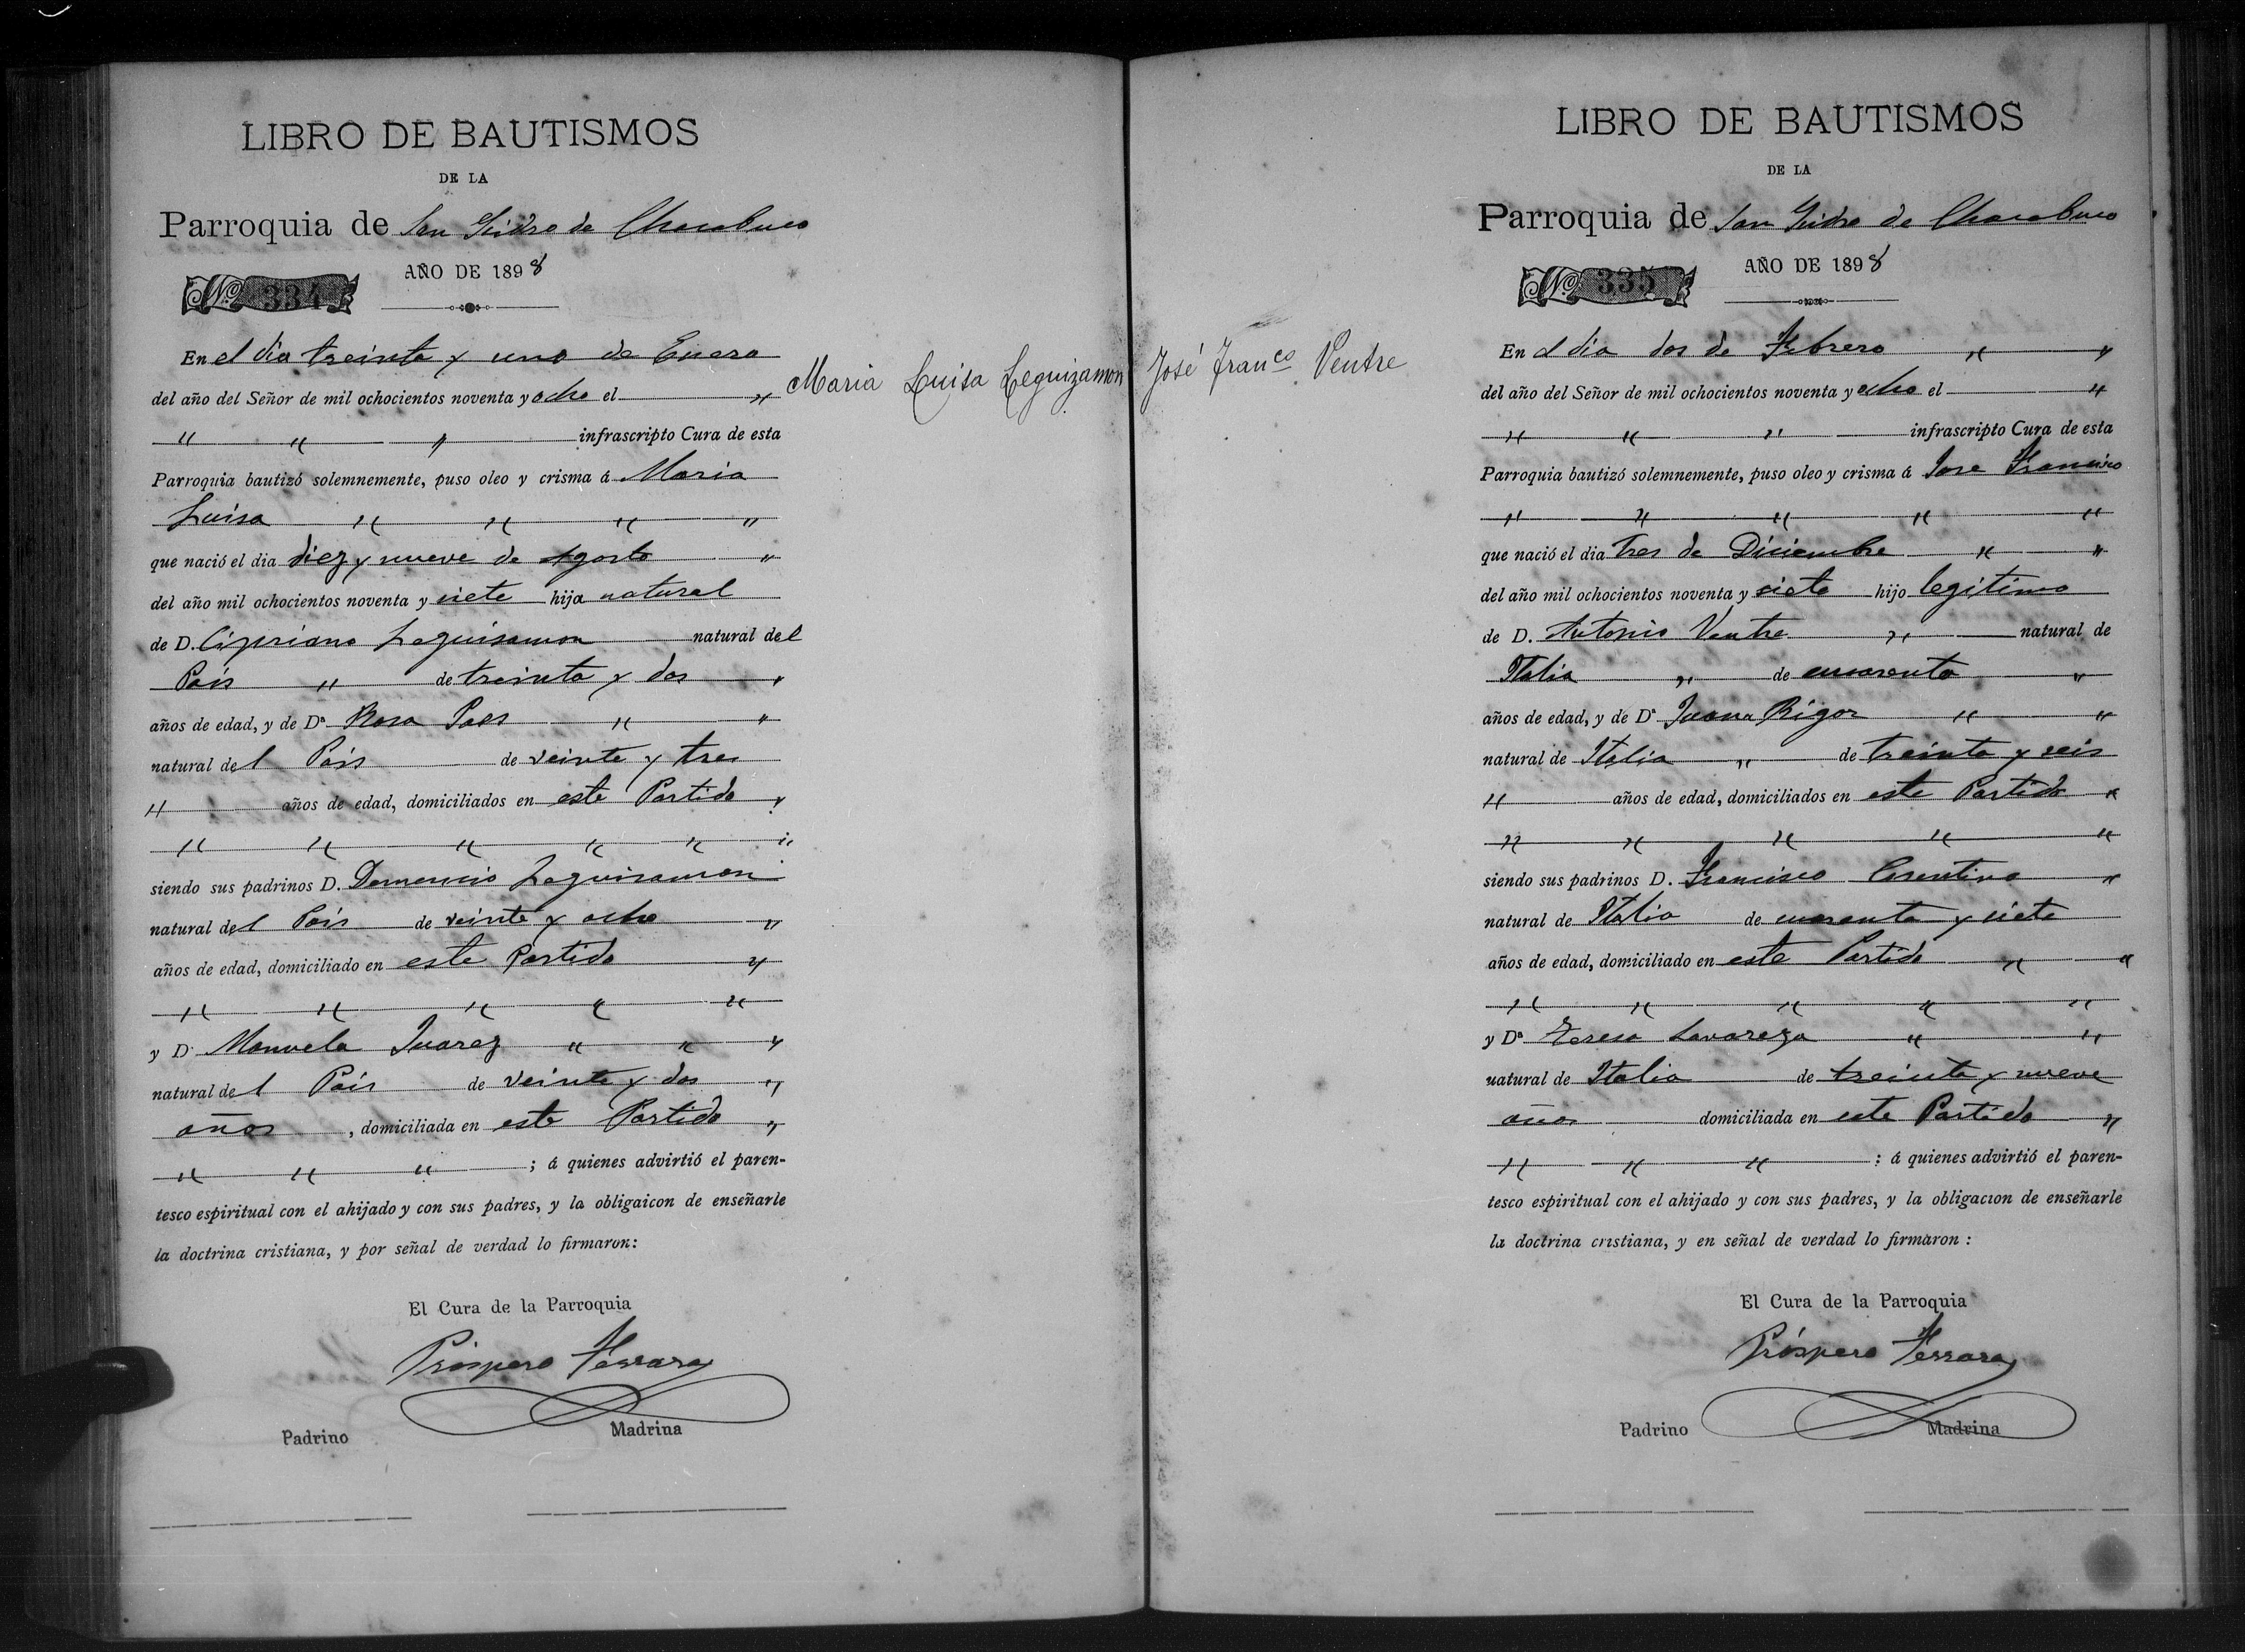 LIBRO DE BAUTISMOS
DE LA
Parroquia de San Isidro de Chacabuco
AÑO DE 1898
No. 334
En el dia treinta y uno de Enero
del año del Señor de mil ochocientos noventa y ocho el "
" " " infrascripto Cura de esta
Parroquia bautizó solemnemente, puso oleo y crisma á Maria
Luisa " " " "
que nació el dia diez y nueve de Agosto "
del año mil ochocientos noventa y siete hija natural
de D. Cipriano Leguisamon natural del
Pais " de treinta y dos "
años de edad, y de Da Rosa Paes " "
natural del Pais de veinte y tres
" años de edad, domiciliados en este Partido "
" " " " " "
siendo sus padrinos D. Leguisamon
natural del Pais de veinte y ocho "
años de edad, domiciliado en este Partido "
" " " " "
y D. Manuela Juarez " " "
natural del Pais de veinte y dos "
años , domiciliada en este Partido "
" " " ; á quienes advirtió el paren-
tesco espiritual con el ahijado y con sus padres, y la obligaicon de enseñarle
la doctrina cristiana, y por señal de verdad lo firmaron:
El Cura de la Parroquia
Próspero Ferrara
Padrino Madrina
Maria Luisa Leguizamon
José Franco Ventre
LIBRO DE BAUTISMOS
DE LA
Parroquia de San Isidro de Chacabuco
AÑO DE 1898
No. 335
En el dia dos de Febrero " "
del año del Señor de mil ochocientos noventa y ocho el "
" " " infrascripto Cura de esta
Parroquia bautizó solemnemente, puso oleo y crisma á Jose Francisco
" " " " "
que nació el dia tres de Diciembre " "
del año mil ochocientos noventa y siete hijo legitimo
de D. Antonio Ventre " natural de
Italia " de cuarenta "
años de edad, y de Da Juana Rigor " "
natural de Italia " de treinta y seis
" años de edad, domiciliados en este Partido "
" " " " "
siendo sus padrinos D. Francisco "
natural de Italia de cuarenta y siete
años de edad, domiciliado en este Partido " "
" " " " "
y Da Teresa " "
natural de Italia de treinta y nueve
años domiciliada en este Partido "
" " " : á quienes advirtió el paren-
tesco espiritual con el ahijado y con sus padres, y la obligacion de enseñarle
la doctrina cristiana, y en señal de verdad lo firmaron :
El Cura de la Parroquia
Próspero Ferrara
Padrino Madrina